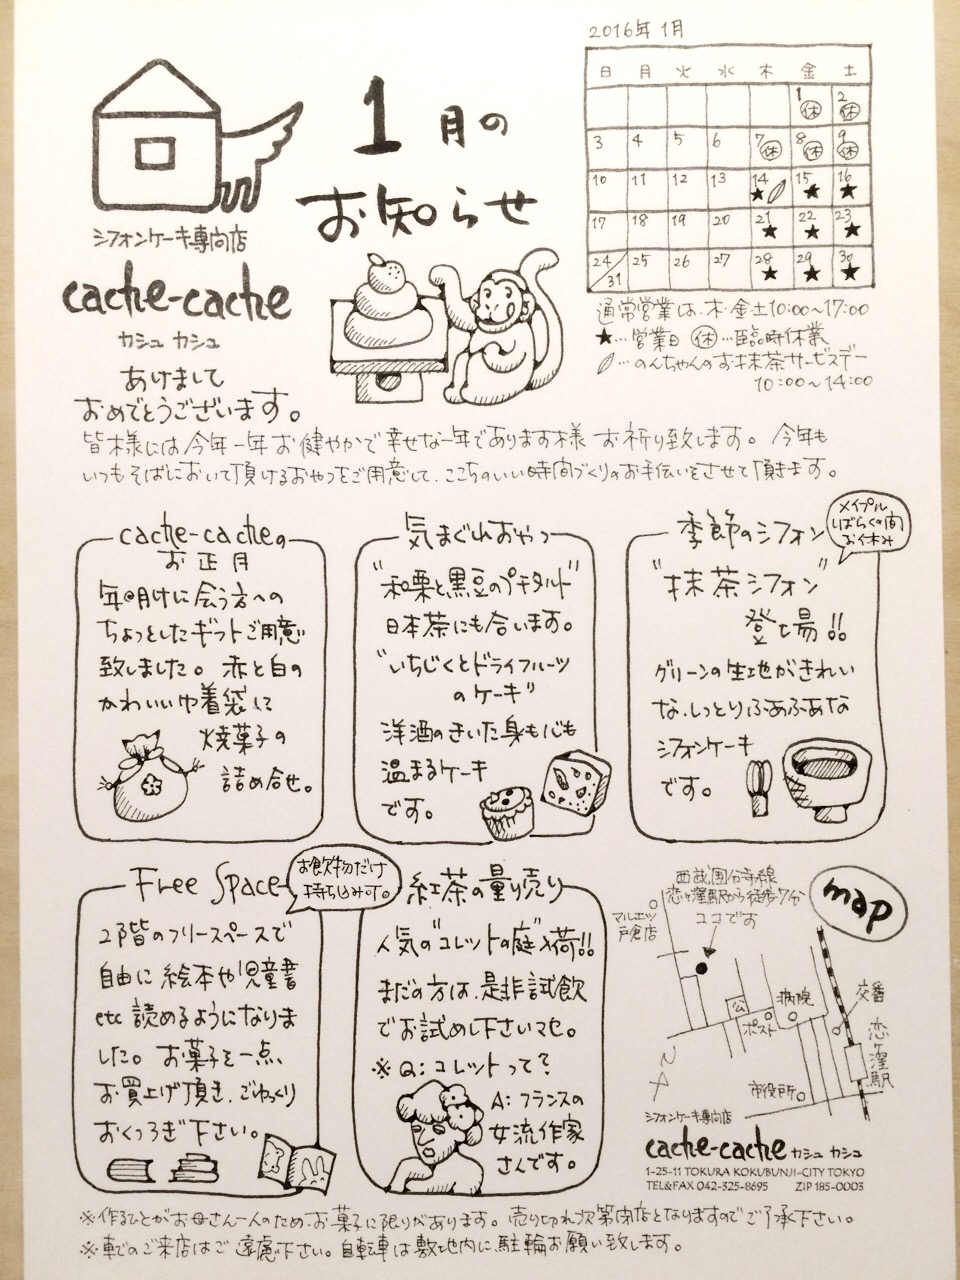 1月の
お知らせ
シフォンケーキ専門店
cache-cache
カシュ カシュ
2016年1月
日 月 火 水 木 金 土
1休 2休
3 4 5 6 7休 8休 9休
10 11 12 13 14★ 15★ 16★
17 18 19 20 21★ 22★ 23★
24/31 25 26 27 28★ 29★ 30★
通常営業は、木・金・土10:00〜17:00
★…営業日 休…臨時休業
…のんちゃんのお抹茶サービスデー
10:00〜14:00
あけまして
おめでとうございます。
皆様には今年一年お健やかで幸せな一年であります様 お祈り致します。今年も
いつもそばにおいて頂けるおやつをご用意して、ここちのいい時間づくりのお手伝いをさせて頂きます。
cache-cacheの
お正月
年明けに会う方への
ちょっとしたギフトご用意
致しました。赤と白の
かわいい巾着袋に
焼菓子の
詰め合せ。
気まぐれおやつ
"和栗と黒豆のプチタルト"
日本茶にも合います。
"いちじくとドライフルーツ
のケーキ"
洋酒のきいた身も心も
温まるケーキ
です。
季節のシフォン
メイプル
しばらくの間
お休み
"抹茶シフォン"
登場!!
グリーンの生地がきれい
な、しっとりふあふあな
シフォンケーキ
です。
Free Space
お飲物だけ
持ち込み可。
2階のフリースペースで
自由に絵本や児童書
etc 読めるようになりま
した。お菓子を一点、
お買上げ頂き、ごゆっくり
おくつろぎ下さい。
紅茶の量り売り
人気の"コレットの庭"入荷!!
まだの方は、是非試飲
でお試め下さいませ。
※Q:コレットって?
A:フランスの
女流作家
さんです。
map
西武国分寺線
恋ヶ窪駅から徒歩7分
ココです
マルエツ
戸倉店
公
ポスト
病院
交番
恋ヶ窪駅
市役所
N
シフォンケーキ専門店
cache-cache カシュ カシュ
1-25-11 TOKURA KOKUBUNJI-CITY TOKYO
TEL&FAX 042-325-8695 ZIP 185-0003
※作るひとがお母さん一人のため、お菓子に限りがあります。売り切れ次第閉店となりますのでご了承下さい。
※車でのご来店はご遠慮下さい。自転車は敷地内に駐輪お願い致します。